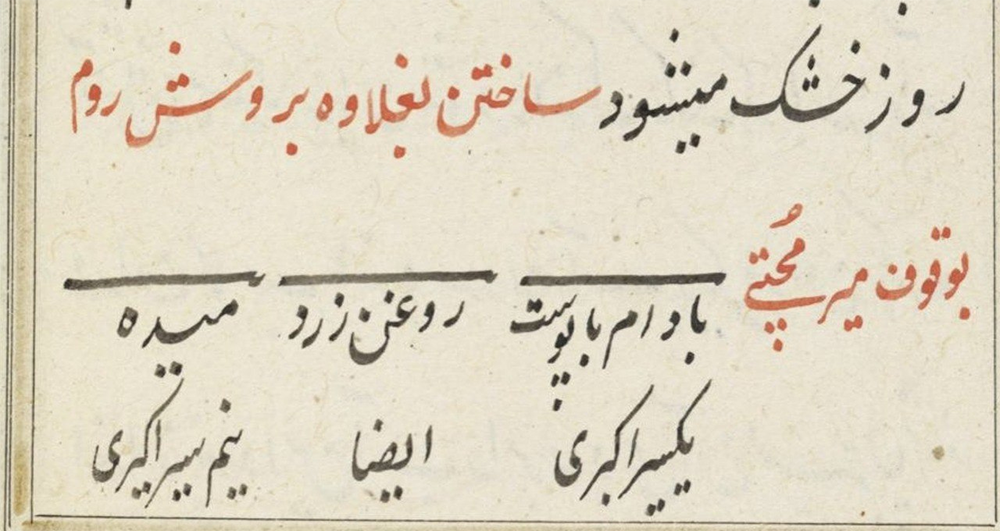 روز خشک میشود ساختن بغلاوه بروش روم
بوقوف میر مُحبتی
بادام با پوست روغن زرد میده
یکسیر اکبری ایضا نیم سیر اکبری